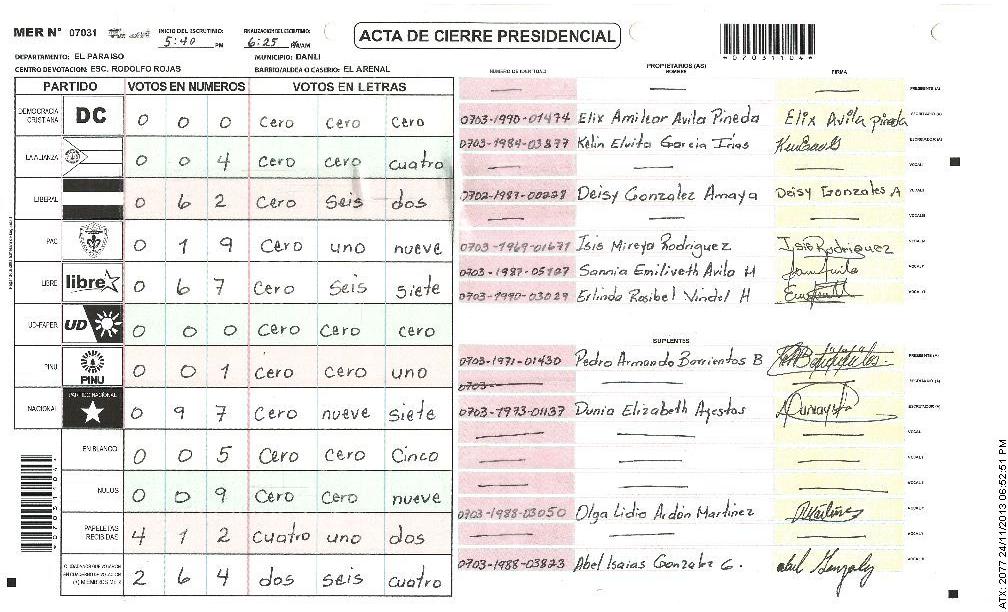 MER N° 07031 INICIO DEL ESCRUTINIO: 5:40 PM FINALIZACION DEL ESCRUTINIO: 6:25 PM/AM ACTA DE CIERRE PRESIDENCIAL
*07031104*
DEPARTAMENTO: EL PARAISO MUNICIPIO: DANLI
CENTRO DE VOTACION: ESC. RODOLFO ROJAS BARRIO/ALDEA O CASERIO: EL ARENAL
PARTIDO VOTOS EN NUMEROS VOTOS EN LETRAS
DEMOCRACIA CRISTIANA DC 0 0 0 Cero Cero Cero
LA ALIANZA 0 0 4 Cero cero cuatro
LIBERAL 0 6 2 Cero Seis dos
PAC 0 1 9 Cero uno nueve
LIBRE libre 0 6 7 Cero Seis siete
UD-FAPER UD 0 0 0 Cero Cero cero
PINU PINU 0 0 1 Cero cero uno
NACIONAL PARTIDO NACIONAL 0 9 7 Cero nueve siete
EN BLANCO 0 0 5 Cero Cero Cinco
NULOS 0 0 9 Cero Cero nueve
PAPELETAS RECIBIDAS 4 1 2 Cuatro uno dos
2 6 4 dos seis cuatro
PROPIETARIOS (AS)
NUMERO DE IDENTIDAD NOMBRE FIRMA
PRESIDENTE (A)
0703-1990-01474 Elix Amilcar Avila Pineda Elix Avila pineda SECRETARIO (A)
0703-1984-03877 Kelin Elvita Garcia Irias ESCRUTADOR (A)
VOCAL I
0702-1987-00228 Deisy Gonzalez Amaya Deisy Gonzales A
0703-1969-01671 Isis Mireya Rodriguez Isis Rodriguez
0703-1987-05107 Sannia Emiliveth Avila H
0703-1990-03029 Erlinda Rosibel Vindel H
SUPLENTES
0703-1971-01430 Pedro Armando Barrientos B PRESIDENTE (A)
0703- SECRETARIO (A)
0703-1973-01137 Dunia Elizabeth Agestas ESCRUTADOR (A)
VOCAL I
0703-1988-03050 Olga Lidia Ardón Martinez
0703-1988-03823 Abel Isaias Gonzalez G. abel Gonzalez
ATX: 2077 24/11/2013 06:52:51 PM